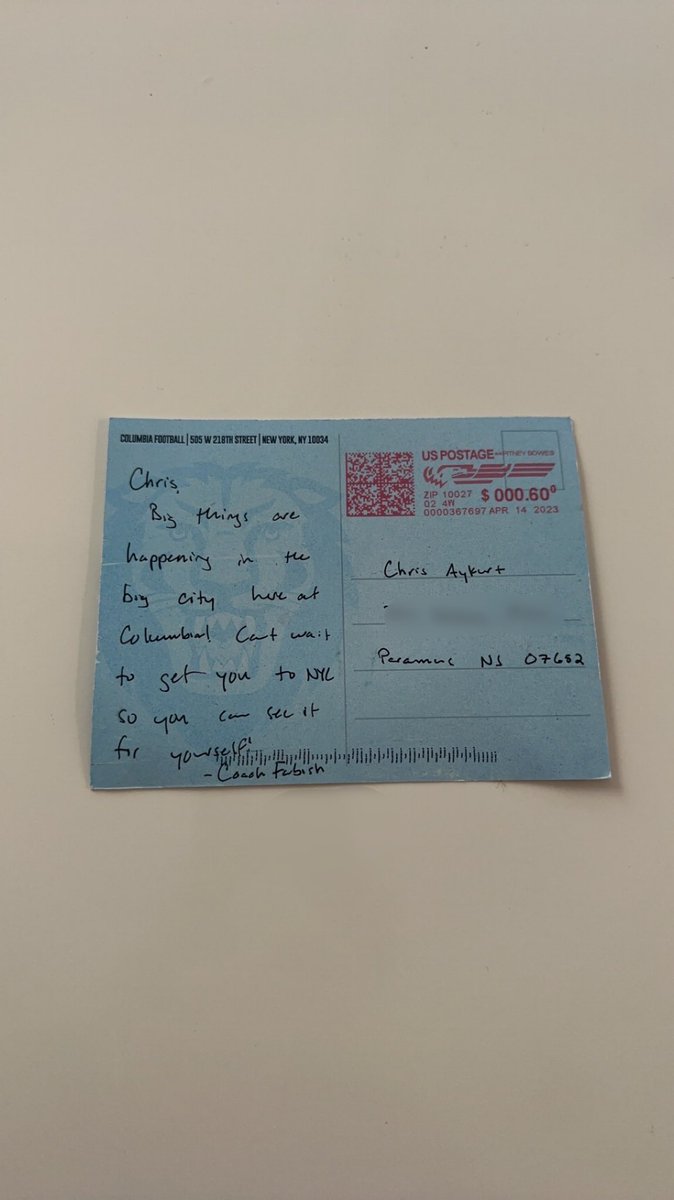 COLUMBIA FOOTBALL | 505 W 218TH STREET | NEW YORK, NY 10034
Chris,
Big things are
happening in the
big city here at
Columbia! Can't wait
to get you to NYC
so you can see it
for yourself!
- Coach Fabish
US POSTAGE PITNEY BOWES
ZIP 10027 $ 000.60⁰
02 4W
0000367697 APR 14 2023
Chris Aykurt
Paramus NJ 07652